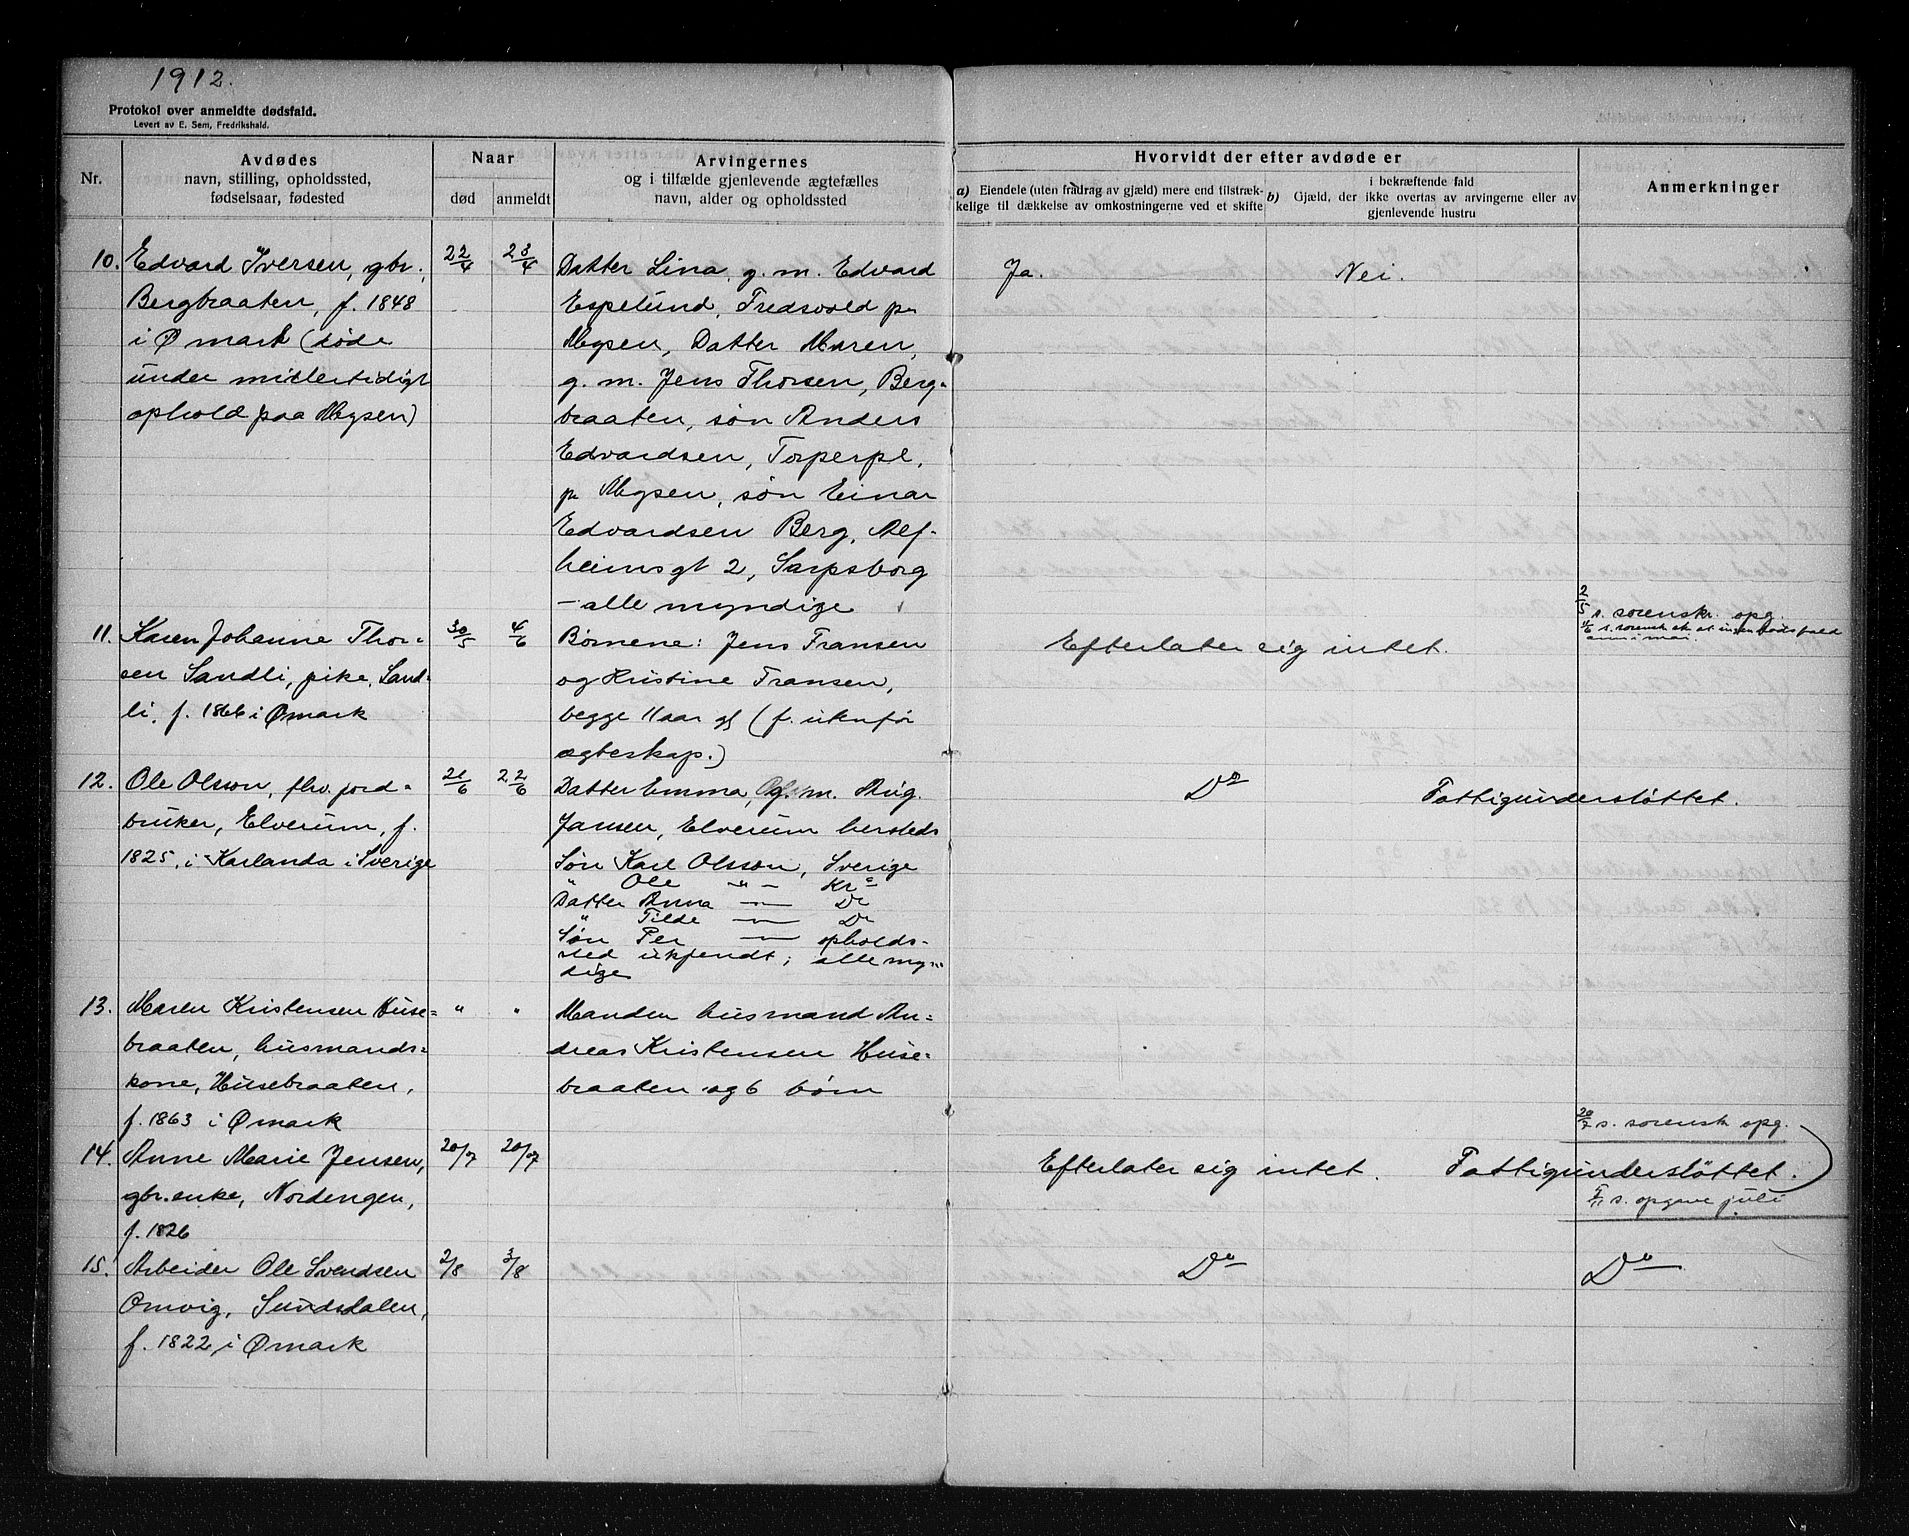 1912.
Protokol over anmeldte dødsfald.
Levert av E. Sem, Fredrikshald.
Nr.
Avdødes
navn, stilling, opholdssted,
fødselsaar, fødested
Naar
død
anmeldt
Arvingernes
og i tilfælde gjenlevende ægtefælles
navn, alder og opholdssted
Hvorvidt der efter avdøde er
a) Eiendele (uten fradrag av gjæld) mere end tilstræk-
kelige til dækkelse av omkostningerne ved et skifte
i bekræftende fald
b) Gjæld, der ikke overtas av arvingerne eller av
gjenlevende hustru
Anmerkninger
10. Edvard Iversen, gbr.,
Bergbraaten, f. 1848
i Ømark (døde
under midlertidigt
ophold paa Mysen)
22/4
23/4
Datter Lina, g. m. Edvard
Espelund, Fredsvold pr
Mysen, Datter Maren,
g. m. Jens Thorsen, Berg-
braaten, søn Anders
Edvardsen, Torperpl.
pr Mysen, søn Einar
Edvardsen Berg, Alf-
heimsgt 2, Sarpsborg
- alle myndige
Ja.
Nei.
2/5 s. sorenskr. opg.
4/6 s. sorensk at ingen dødsfald
anm i mai.
11. Karen Johanne Thor-
sen Sandli, pike, Sand-
li, f. 1866 i Ømark
30/5
4/6
Børnene: Jens Fransen
og Kristine Fransen,
begge 11 aar gl (f. utenfor
ægteskap.)
Efterlater sig intet.
12. Ole Olsson, fhv. jord-
bruker, Elverum, f.
1825, i Karlanda i Sverige
21/6
22/6
Datter Emma, g. m. Aug.
Jansen, Elverum hersteds
Søn Karl Olsson, Sverige
" Ole - " - Kra
Datter Anna - " - Do
" Tilde - " - Do
Søn Per - " - opholds-
sted ukjendt; alle myn-
dige
Do
Fattigunderstøttet.
13. Maren Kristensen Huse-
braaten, husmands-
kone, Husebraaten,
f. 1863 i Ømark
"
"
Manden husmand An-
dreas Kristensen Huse-
braaten og 6 børn
20/7 s. sorensk opg.
14. Anne Marie Jensen,
gbr.enke, Nordengen,
f. 1826
20/7
20/7
Efterlater sig intet.
Fattigunderstøttet.
s. opgave juli
15. Arbeider Ole Svendsen
Omvig, Sundsdalen,
f. 1822 i Ømark
2/8
3/8
Do
Do